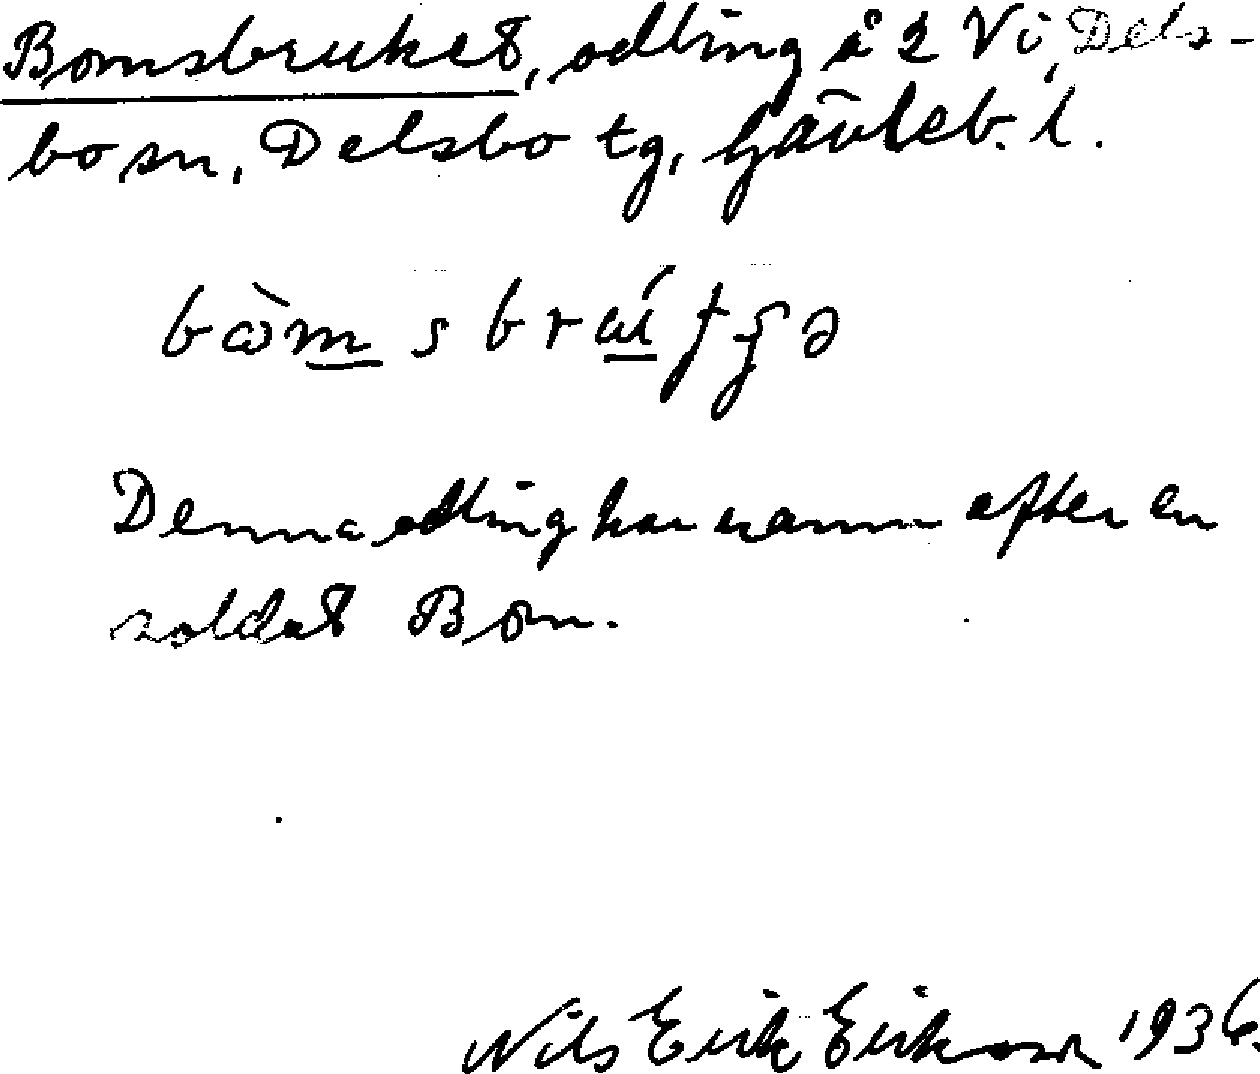 Bomsbruket, odling å 2 Vi, Dels-
bo sn, Delsbo tg, Gävleb. l.
Denna odling har namn efter en
soldat Bom.
Nils Erik Eriksson 1936.